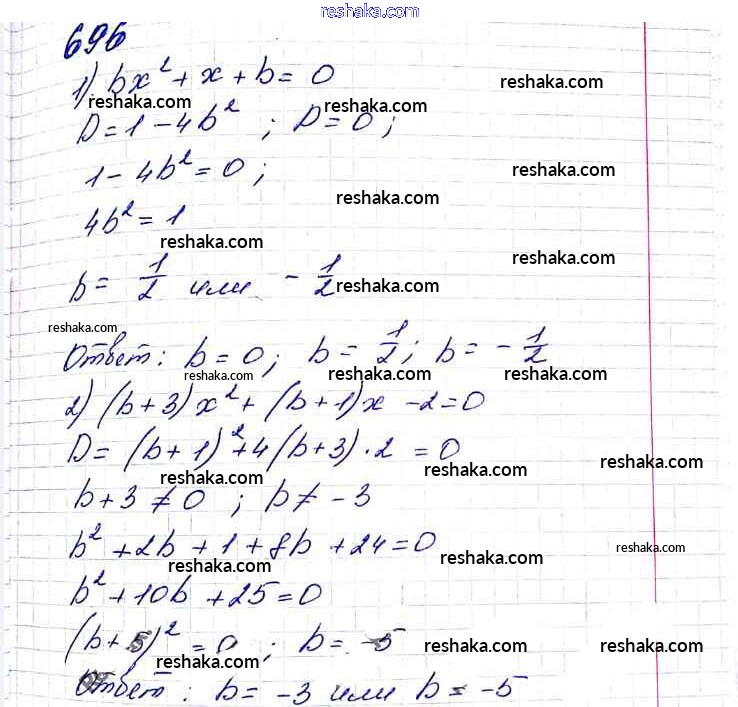 reshaka.com
696
1) bx² + x + b = 0
reshaka.com reshaka.com
D = 1 - 4b² ; D = 0 ;
1 - 4b² = 0 ;
reshaka.com
reshaka.com
4b² = 1
reshaka.com
reshaka.com
b = 1/2 или - 1/2
reshaka.com
reshaka.com
Ответ: b = 0; b = 1/2; b = - 1/2
reshaka.com reshaka.com reshaka.com
2) (b + 3)x² + (b + 1)x - 2 = 0
D = (b + 1)² + 4(b + 3) · 2 = 0
reshaka.com reshaka.com reshaka.com
b + 3 ≠ 0 ; b ≠ - 3
b² + 2b + 1 + 8b + 24 = 0
reshaka.com reshaka.com reshaka.com
b² + 10b + 25 = 0
(b + 5)² = 0 ; b = - 5
reshaka.com reshaka.com reshaka.com
Ответ: b = - 3 или b = - 5